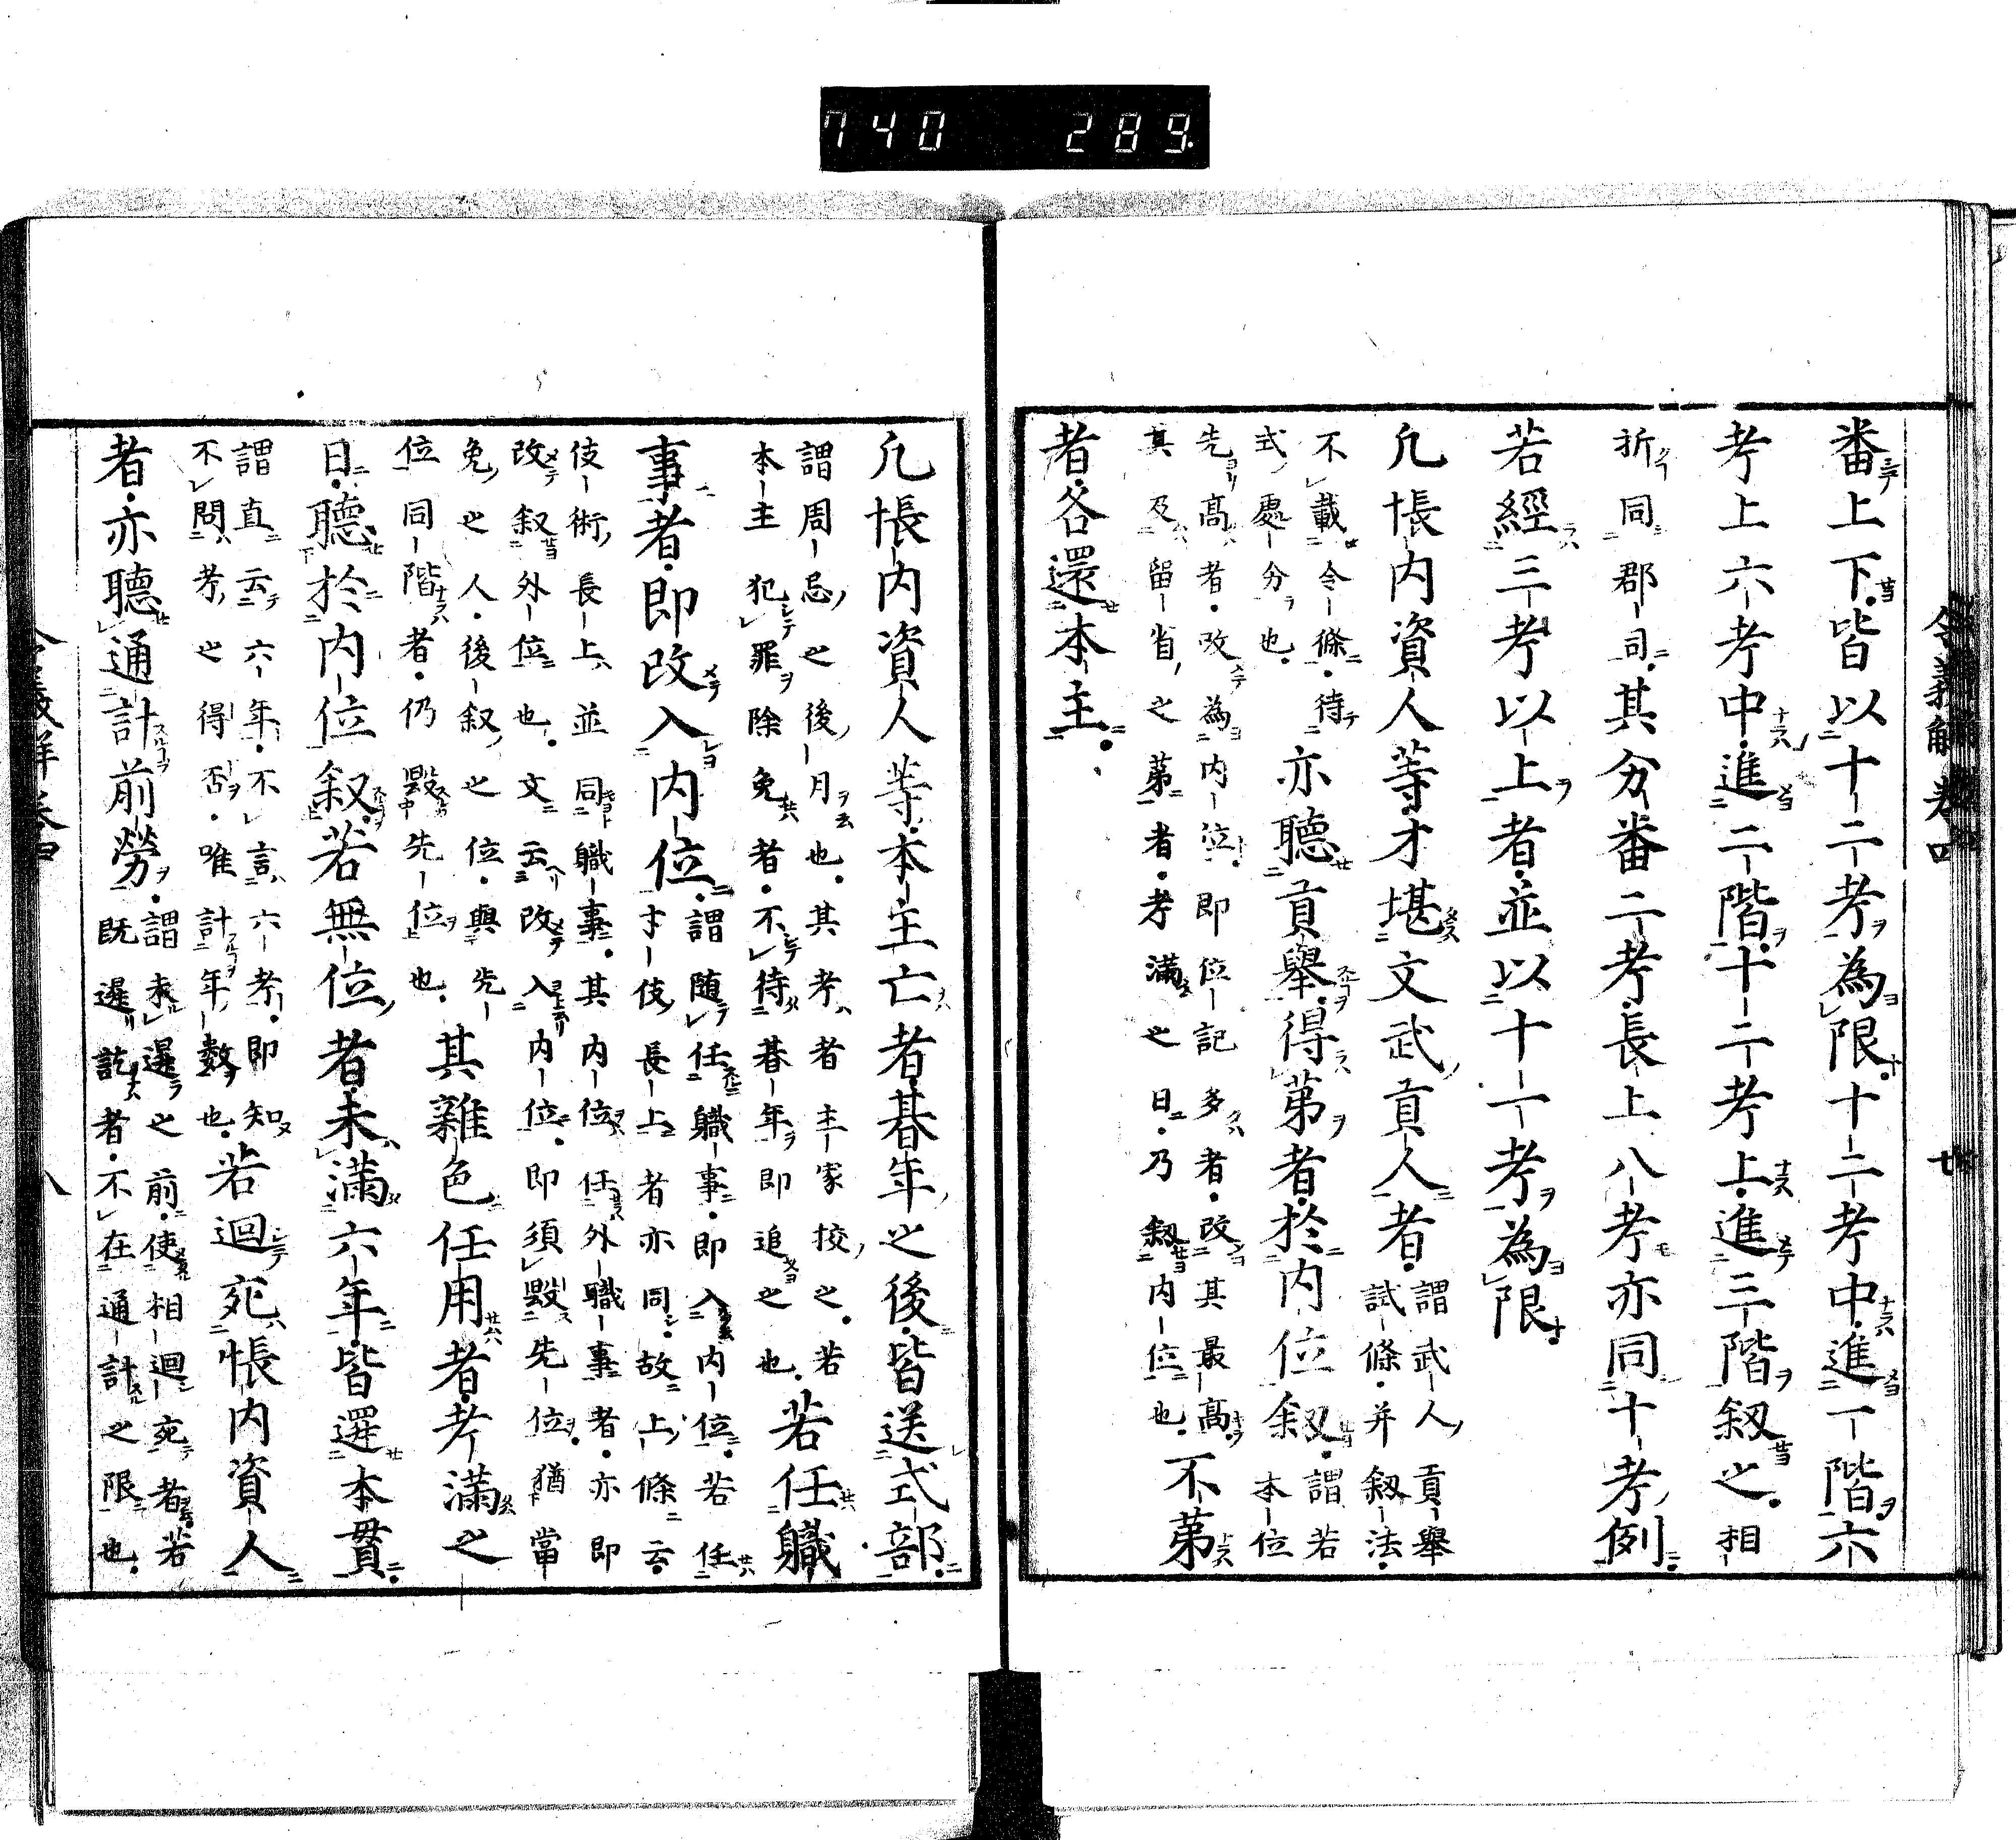 740 289
令義解卷四 七
番上下皆以十二考為限十二考中進一階六
考上六考中進二階十二考上進三階叙之相
折同郡司其分番二考長上八考亦同十考例
若經三考以上者並以十一考為限
凢帳内資人等才堪文武貢人者謂武人貢舉
試條并叙法
不載令條待
式處分也亦聽貢舉得第者於内位叙謂若
本位
先高者改為内位即位記多者改其最高
其及留省之第者考滿之日乃叙内位也不第
者各還本主
凢帳内資人等本主亡者朞年之後皆送式部
謂周忌之後月也其考者主家挍之若
本主犯罪除免者不待朞年即追之也若任職
事者即改入内位謂随任職事即入内位若任
才伎長上者亦同故上條云
伎術長上並同職事其内位任外職事者亦即
改叙外位也文云改入内位即須毀先位猶當
免之人後叙之位與先
位同階者仍毀先位也其雜色任用者考滿之
日聽於内位叙若無位者未滿六年皆還本貫
謂直云六年不言六考即知
不問考之得否唯計年數也若迴充帳内資人
者亦聽通計前勞謂未還之前使相迴充者若
既還訖者不在通計之限也
令義解卷四 八